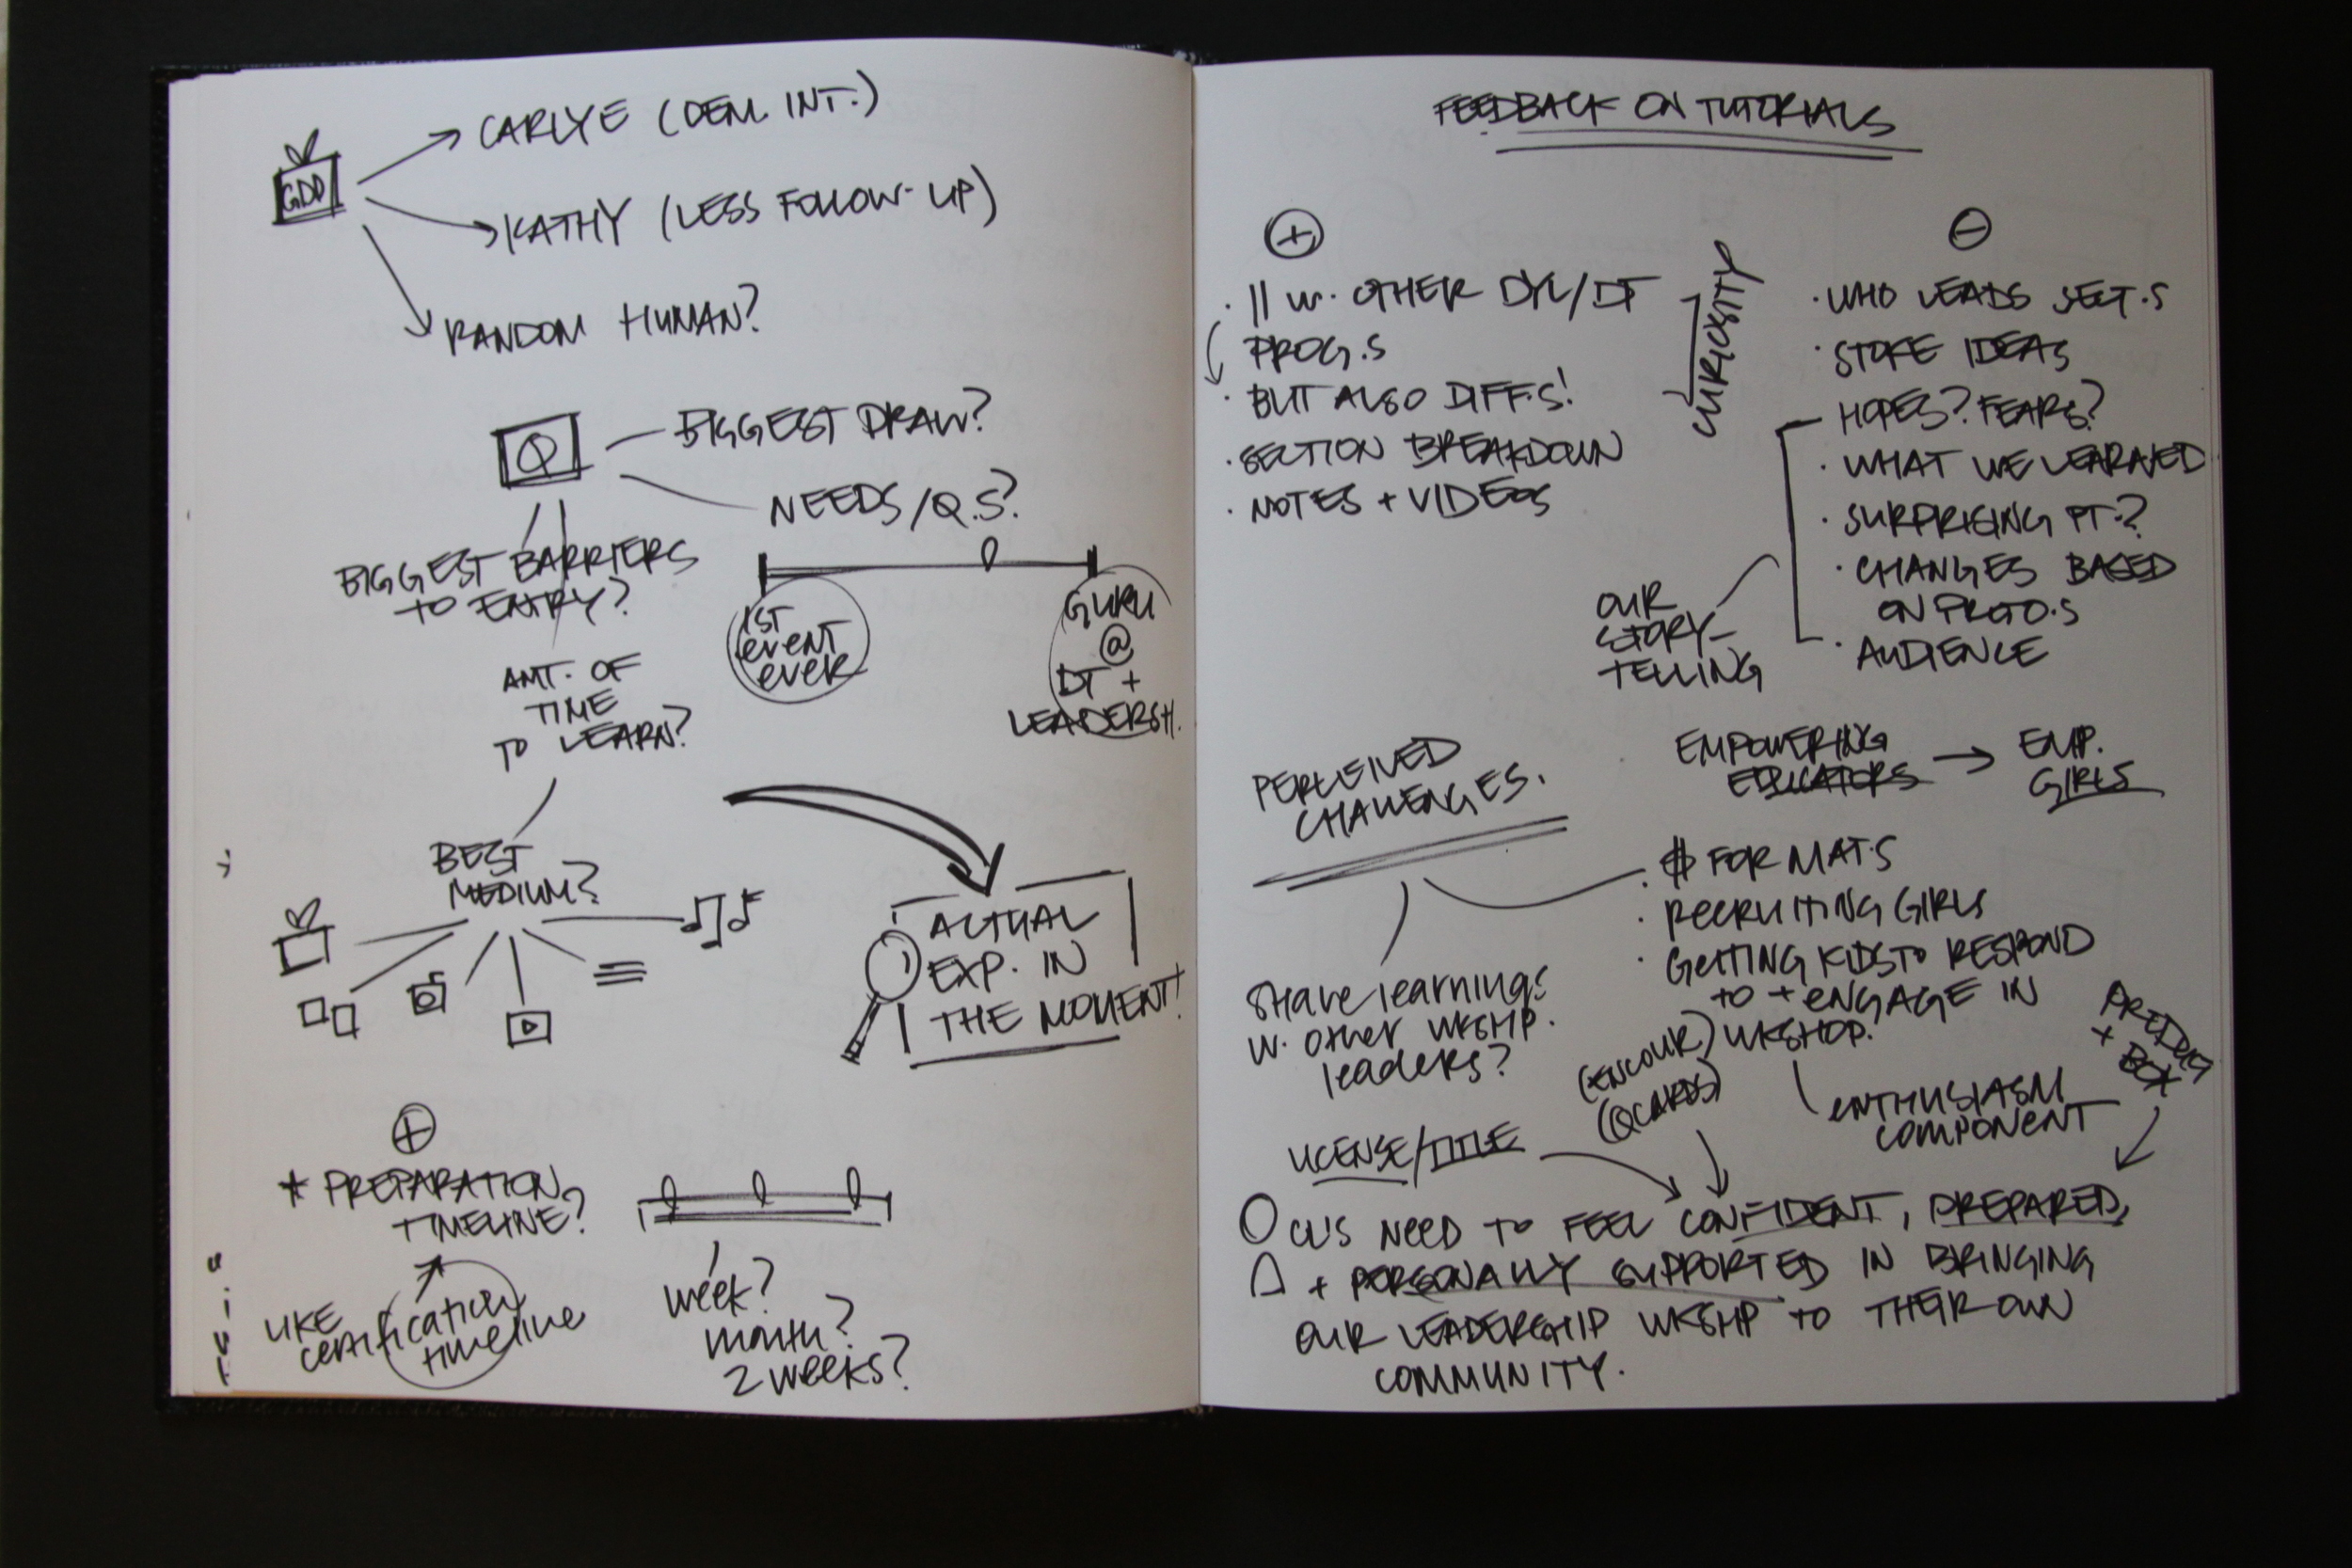 CARLYE (DEM. INT.)
GDD
KATHY (LESS FOLLOW-UP)
RANDOM HUMAN?
Q
BIGGEST DRAW?
NEEDS/Q.S?
BIGGEST BARRIERS
TO ENTRY?
1ST
EVENT
EVER
GURU
@
DT +
LEADERSH.
AMT. OF
TIME
TO LEARN?
BEST
MEDIUM?
ACTUAL
EXP. IN
THE MOMENT!
+
* PREPARATION
TIMELINE?
LIKE
certification
timeline
week?
month?
2 weeks?
FEEDBACK ON TUTORIALS
+
· || W. OTHER DYL/DT
PROG.S
· BUT ALSO DIFFS!
· SECTION BREAKDOWN
· NOTES + VIDEOS
CURIOSITY
-
· WHO LEADS SECT.S
· STOKE IDEAS
HOPES? FEARS?
· WHAT WE LEARNED
· SURPRISING PT.?
· CHANGES BASED
ON PROTO.S
· AUDIENCE
OUR
STORY-
TELLING
EMPOWERING
EDUCATORS → EMP.
GIRLS
PERCEIVED
CHALLENGES.
· $ FOR MAT.S
· RECRUITING GIRLS
· GETTING KIDS TO RESPOND
TO + ENGAGE IN
WKSHOP.
Share learnings
w. other WKSHP.
leaders?
(ENCOUR)
(QCARDS)
ENTHUSIASM
COMPONENT
+ BOX
LICENSE/TITLE
CU'S NEED TO FEEL CONFIDENT, PREPARED,
+ PERSONALLY SUPPORTED IN BRINGING
OUR LEADERSHIP WKSHP TO THEIR OWN
COMMUNITY.